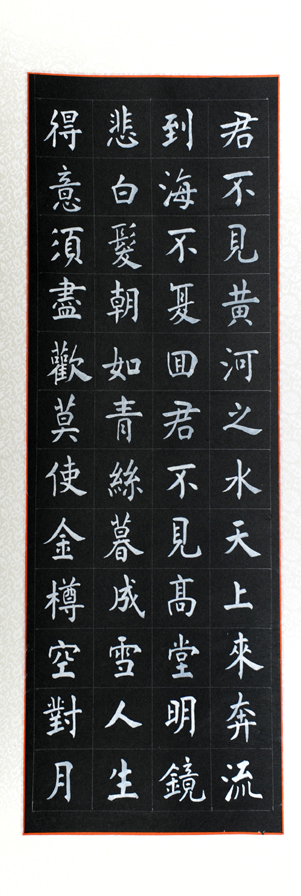 君不見黄河之水天上來奔流
到海不复囬君不見髙堂明鏡
悲白髮朝如青絲暮成雪人生
得意須盡歡莫使金樽空對月